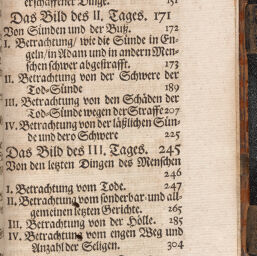 erschaffener Dinge. 151
Das Bild des II. Tages. 171
Von Sünden und der Buß. 172
I. Betrachtung / wie die Sünde in En-
geln / in Adam und in andern Men-
schen schwer abgestrafft. 173
II. Betrachtung von der Schwere der
Tod-Sünde 189
III. Betrachtung von den Schäden der
Tod-Sünde wegen der Straffe 207
IV. Betrachtung von der läßlichen Sün-
de und dero Schwere 225
Das Bild des III. Tages. 245
Von den letzten Dingen des Menschen
246
I. Betrachtung vom Tode. 247
II. Betrachtung vom sonderbar- und all-
gemeinen letzten Gerichte. 265
III. Betrachtung von der Hölle. 285
IV. Betrachtung vom engen Weg und
Anzahl der Seligen. 304